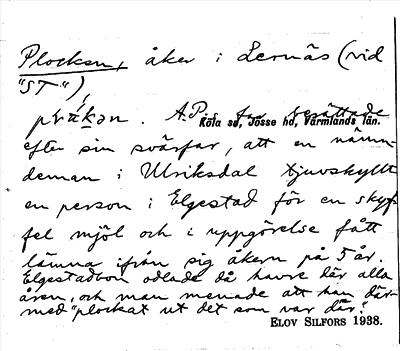 Plocken, åker i Lernäs (vid
"ST"),
A.P. berättade
Köla sn, Jösse hd, Värmlands län.
efter sin svärfar, att en nämn-
deman i Ulriksdal tjuvskyllt
en person i Elgestad för en skyf-
fel mjöl och i uppgörelse fått
lämna ifrån sig åkern på 5 år.
Elgestadbon odlade då havre där alla
åren, och man menade att han där-
med "plockat ut det som var där".
ELOV SILFORS 1938.